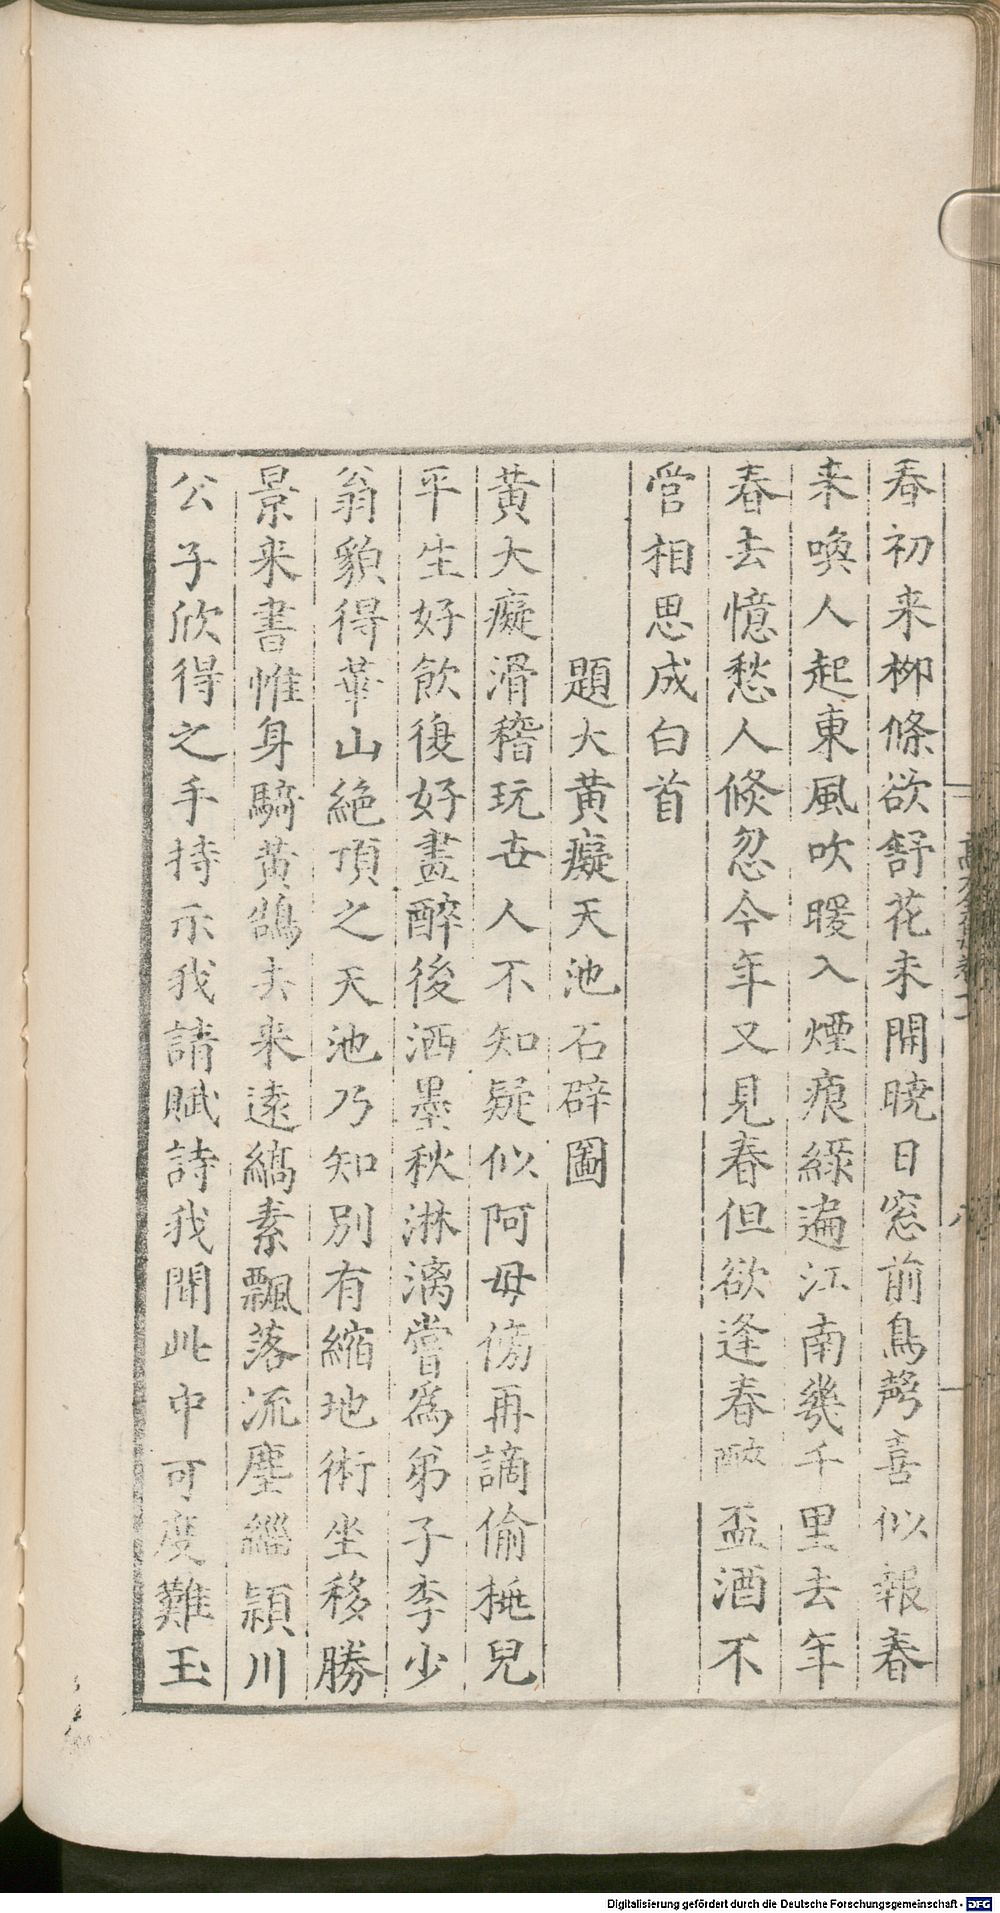 春初来栁條欲舒花未開曉日窓前鳥聲喜似報春
来喚人起東風吹暖入煙痕綠遍江南幾千里去年
春去憶愁人倐忽今年又見春但欲逢春 盃酒不
管相思成白首
題大黄癡天池石辟圖
黄大癡滑稽玩丗人不知疑似阿母傍再謫偷桃兒
平生好飲復好畫醉後洒墨秋淋漓嘗為弟子李少
翁貌得華山絶頂之天池乃知別有縮地術坐移勝
景来書惟身騎黄鵠去来遠縞素飄落流塵緇潁川
公子欣得之手持示我請賦詩我聞此中可度難玉
Digitalisierung gefördert durch die Deutsche Forschungsgemeinschaft - DFG